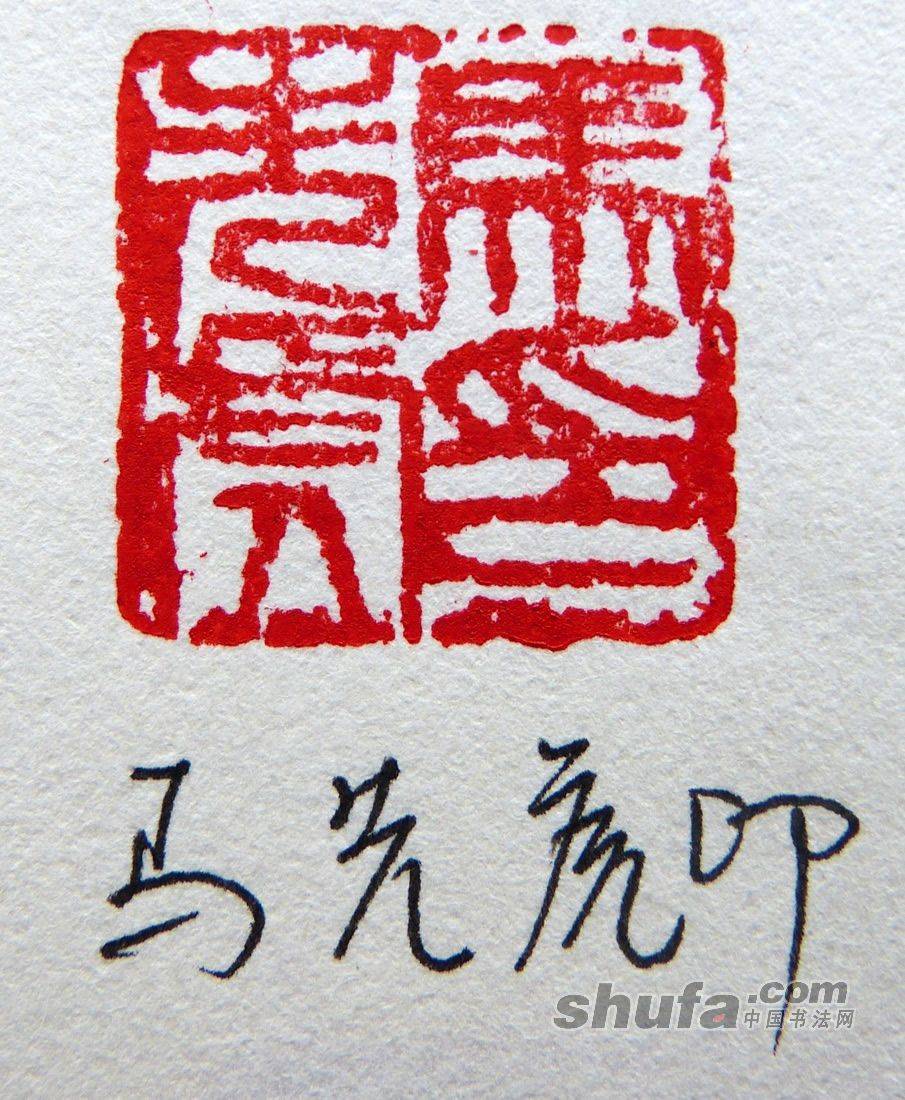 馬先虎印
马先虎印
shufa.com
中国书法网